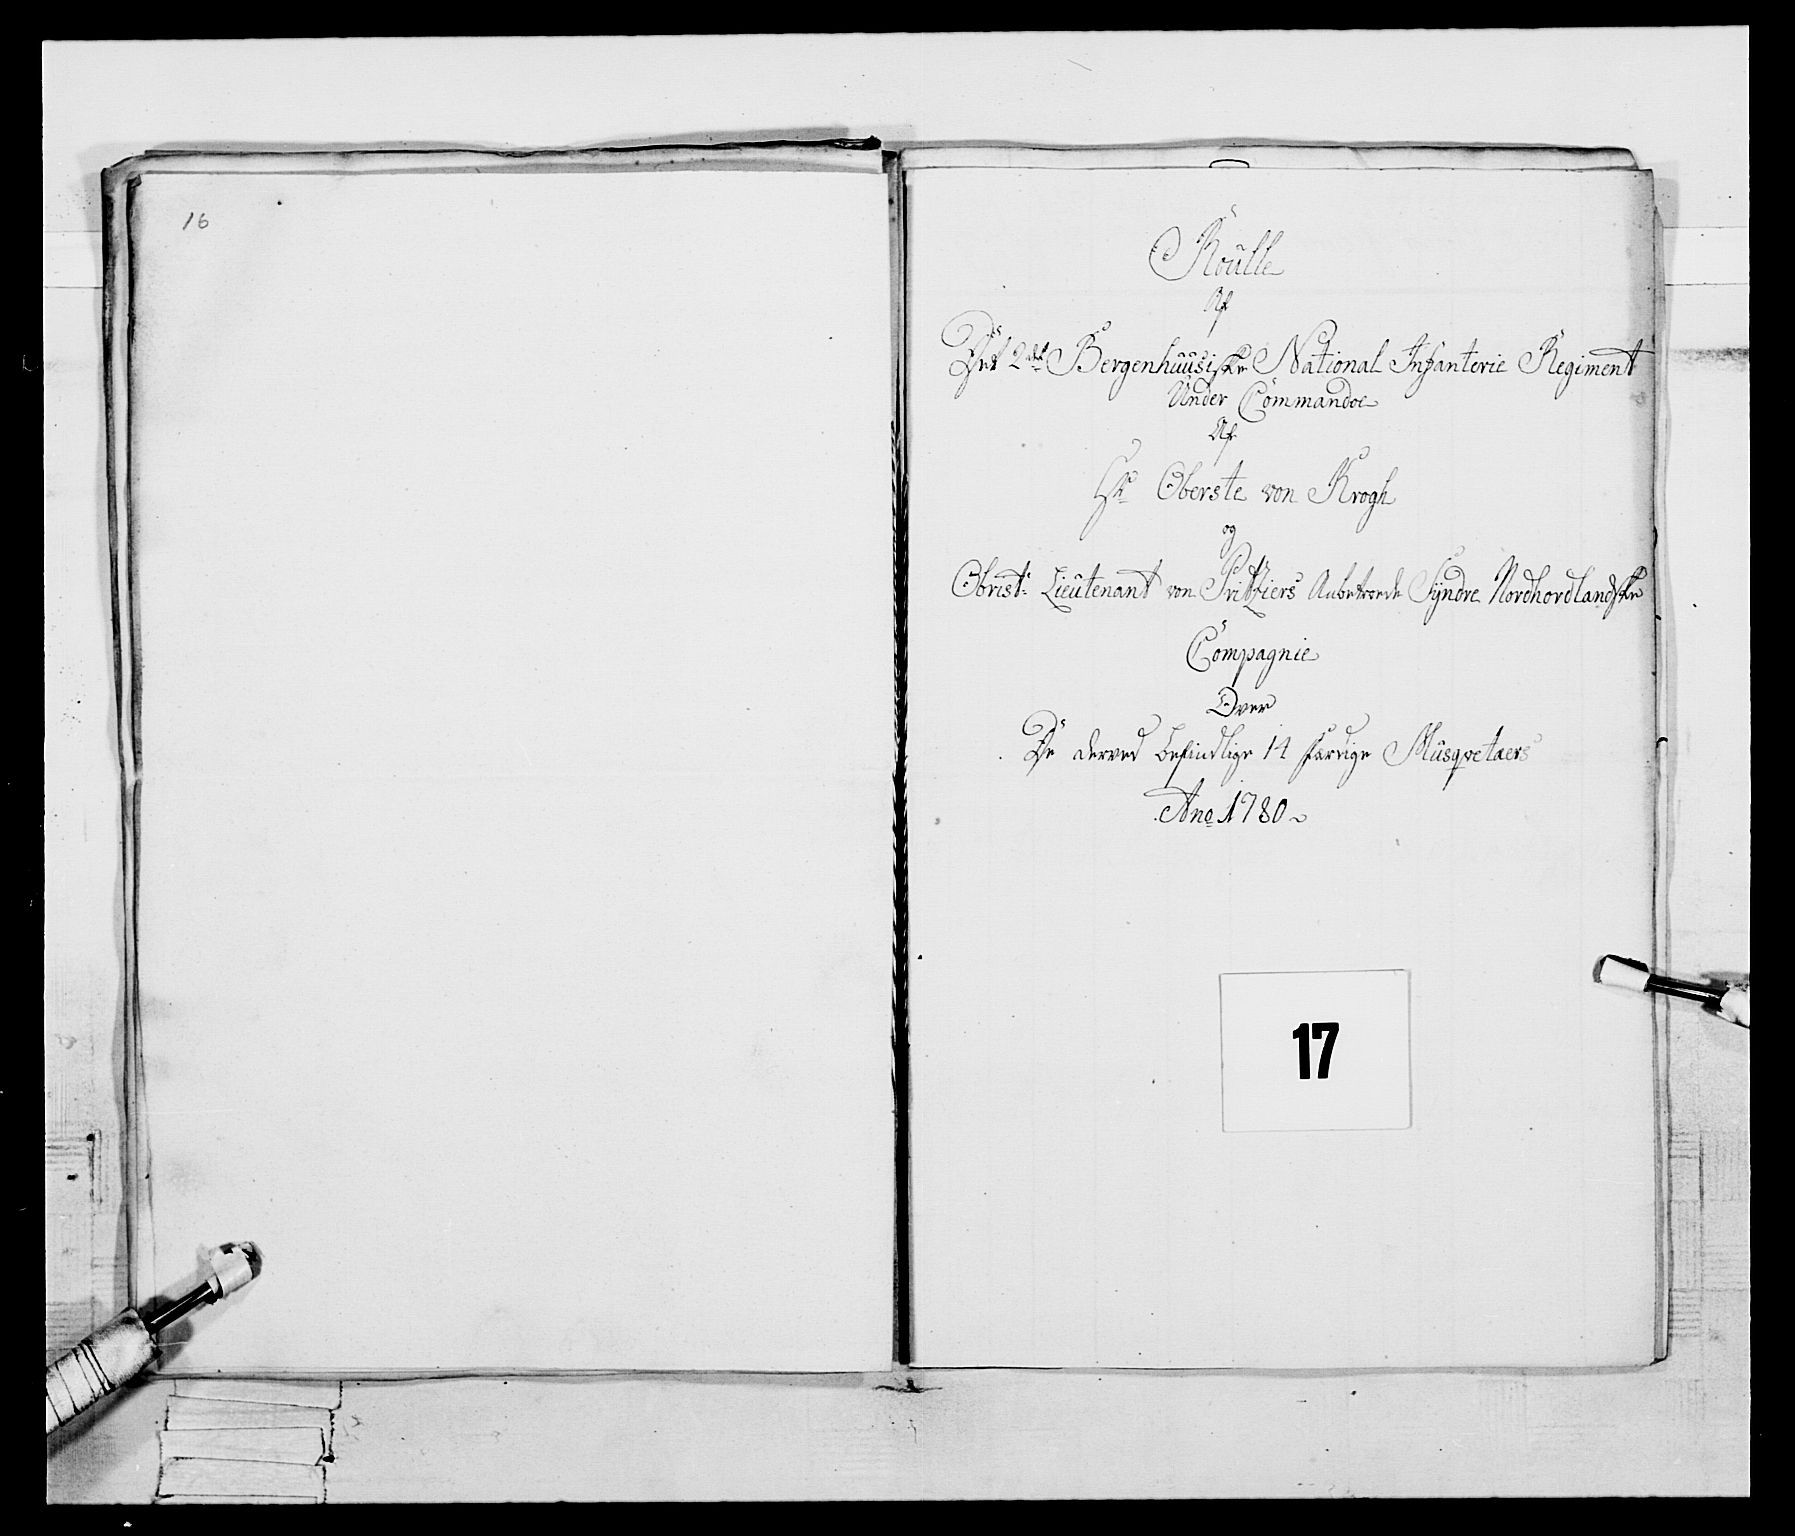 16
Roülle
Af
Det 2det Bergenhuusiske National Infanterie Regiment
Under Commandoe
Af
Hr Oberste von Krogh
og
Obrist: Lieütenant von Pritziers Anbetroede Syndre Nordhordlandske
Compagnie
Over
De derved befindlige 14 færdige Müsqvetaers
Ano 1780
17